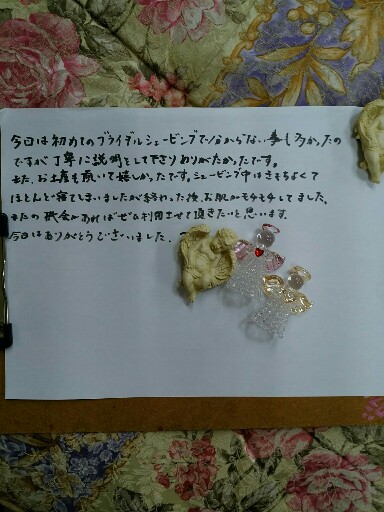 今回は初めてのブライダルシェービングで分からない事も多かったの
ですが丁寧に説明をして下さりありがたかったです。
また、お土産も頂いて嬉しかったです。シェービング中はきもちよくて
ほとんど寝てしまいましたが終わった後、お肌がモチモチしてました。
またの機会があればぜひ利用させて頂きたいと思います。
今日はありがとうございました。